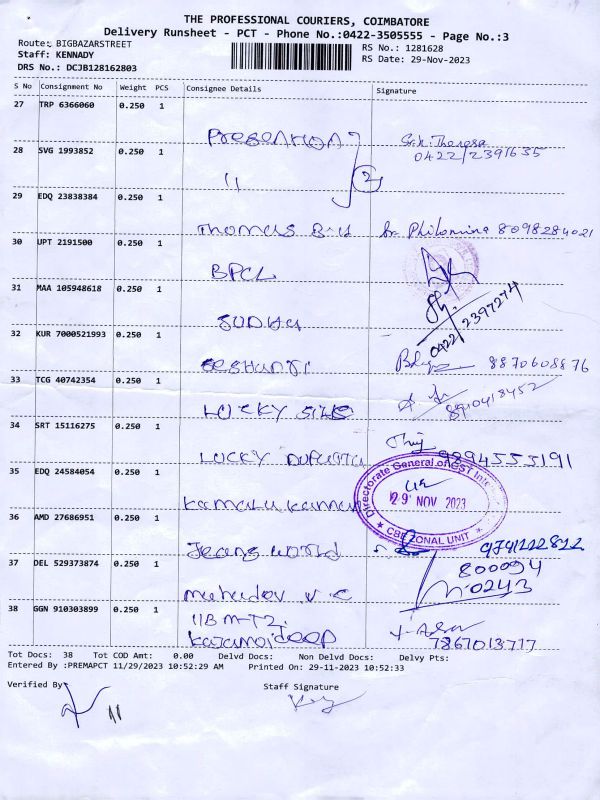 THE PROFESSIONAL COURIERS, COIMBATORE
Delivery Runsheet - PCT - Phone No.:0422-3505555 - Page No.:3
Route: BIGBAZARSTREET
Staff: KENNADY
DRS No.: DCJB128162803
RS No.: 1281628
RS Date: 29-Nov-2023
S No Consignment No Weight PCS Consignee Details Signature
27 TRP 6366060 0.250 1
Presention
28 SVG 1993852 0.250 1
Sr. Theresa
0422/2391635
11
2
29 EDQ 23838384 0.250 1
Thomas Philomina 8098284021
30 UPT 2191500 0.250 1
BPCL
31 MAA 105948618 0.250 1
SUDHA
0422/2397274
32 KUR 7000521993 0.250 1
8870608876
33 TCG 40742354 0.250 1
8910418452
LUCKY SILKS
34 SRT 15116275 0.250 1
LUCKY DUPATTA
9894555191
35 EDQ 24584054 0.250 1
Directorate General of GST
29 NOV 2023
CBE ZONAL UNIT
Kamala Kannan
36 AMD 27686951 0.250 1
Jeans world
9791222812
37 DEL 529373874 0.250 1
800094
10243
mahadev v c
38 GGN 910303899 0.250 1
11B M-T2.
7867013717
Tot Docs: 38 Tot COD Amt: 0.00 Delvd Docs: Non Delvd Docs: Delvy Pts:
Entered By :PREMAPCT 11/29/2023 10:52:29 AM Printed On: 29-11-2023 10:52:33
Verified By: Staff Signature